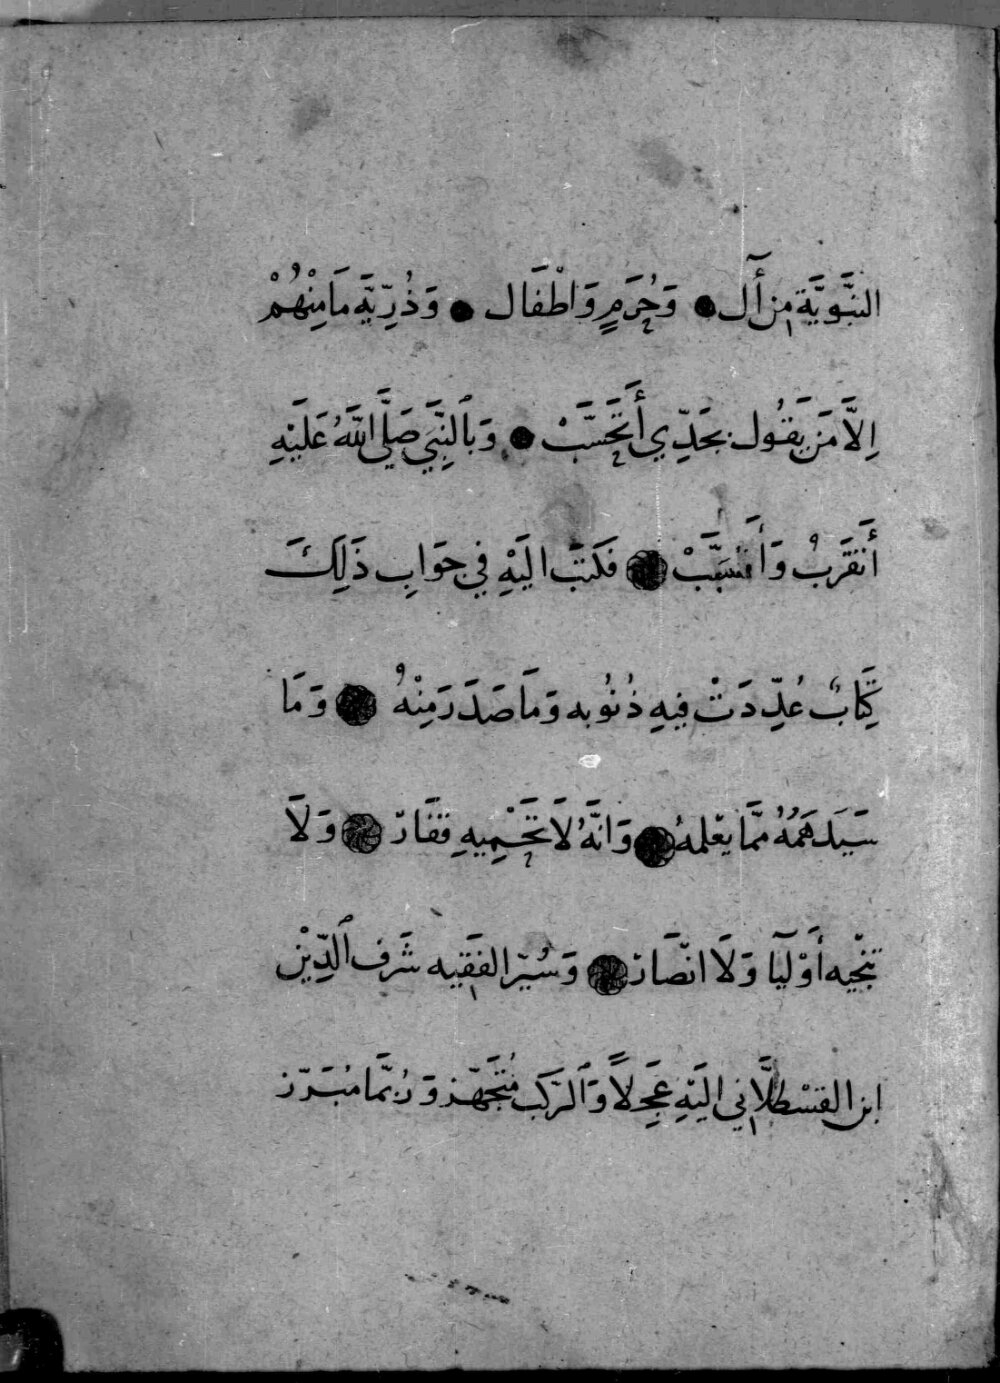 النَّبَوِيَّة مِن آل ● وَحُرَمٍ وَاطْفَال ● وَذُرِّيَّةٍ مَا مِنْهُمْ
اِلَّا مَن يَقُول بِجَدِّي أَتَحَسَّبْ ● وَبالنَّبِي صَلَّى اللَّهُ عَلَيْهِ
أَتَقَرَّبُ وَأَنتَسَّبْ ● فَكَتَبَ الَيْهِ فِي جَوَابِ ذَلِكَ
كِتَابٌ عُدِّدَتْ فِيهِ ذُنُوبه وَمَا صَدَرَ مِنْهُ ● وَمَا
سَيَدهَمُهُ مِمَّا يعْلمهُ ● وَانَّهُ لَا تَحْمِيهِ قفَار ● وَلَا
تنْجِيه أَوْليَآ وَلَا انصَار ● وَسُيّر الفَقِيه شَرَف الدِّيْن
ابن القسْطلَّانِي الَيْهِ عَجِلًا وَالرَّكب مُتَجَهّز وَرُبَّمَا مُبَرّز